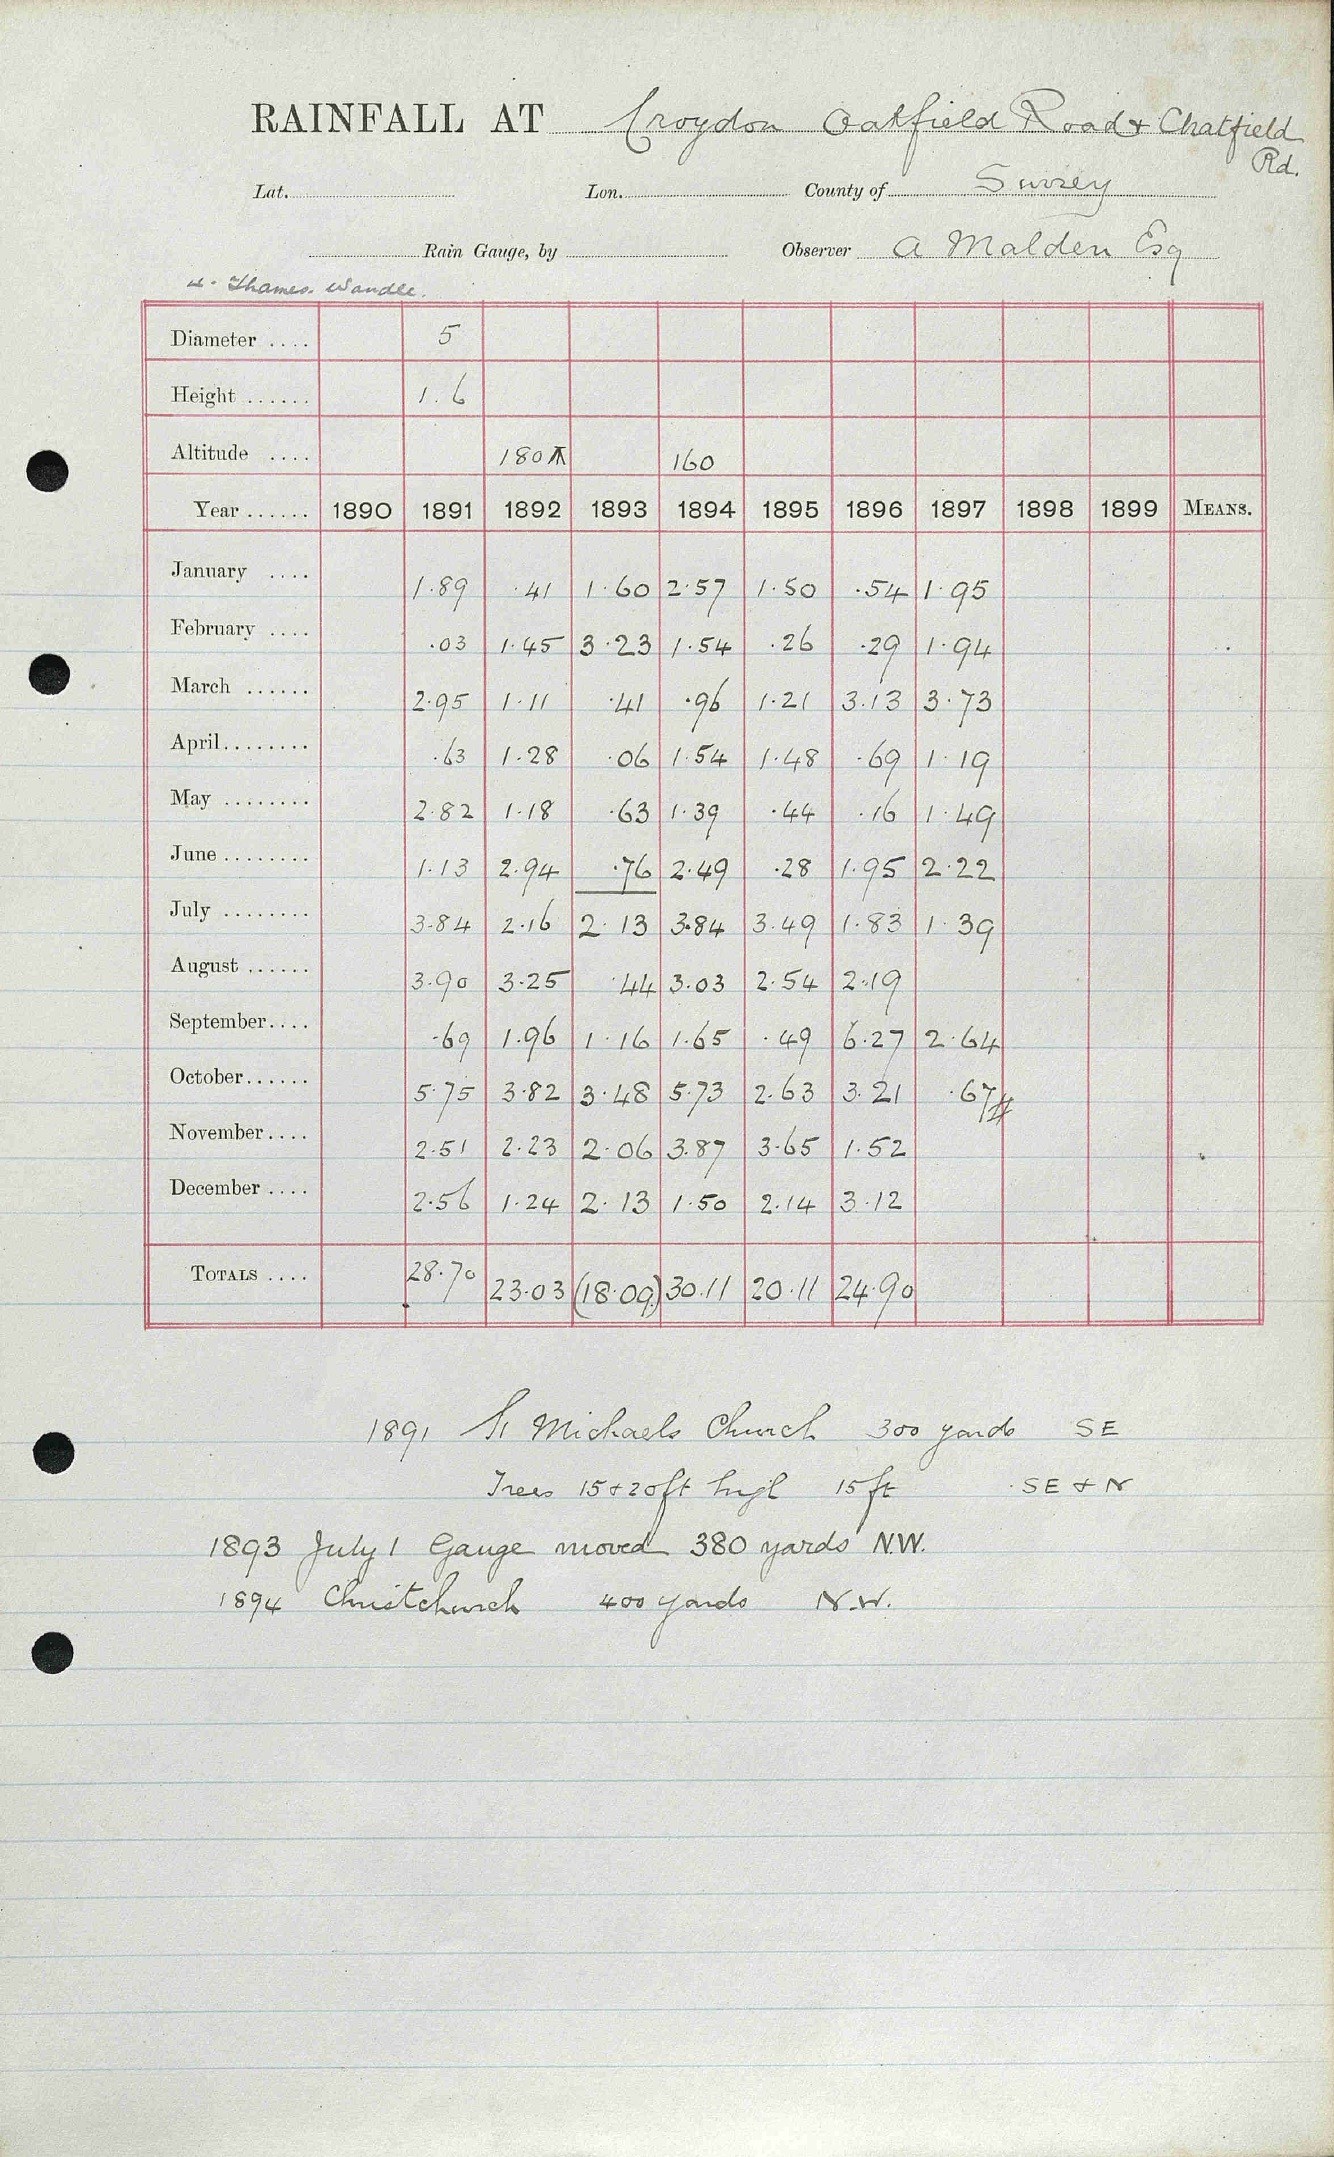 RAINFALL AT Croydon Oakfield Road & Chatfield
Rd.
Lat. Lon. County of Surrey
Rain Gauge, by Observer A Malden Esq
Thames. Wandle.
Diameter .... 5
Height ...... 1.6
Altitude .... 180 160
Year ...... 1890 1891 1892 1893 1894 1895 1896 1897 1898 1899 MEANS.
January .... 1.89 .41 1.60 2.57 1.50 .54 1.95
February .... .03 1.45 3.23 1.54 .26 .29 1.94
March ...... 2.95 1.11 .41 .96 1.21 3.13 3.73
April........ .63 1.28 .06 1.54 1.48 .69 1.19
May ........ 2.82 1.18 .63 1.39 .44 .16 1.49
June ........ 1.13 2.94 .76 2.49 .28 1.95 2.22
July ........ 3.84 2.16 2.13 3.84 3.49 1.83 1.39
August ...... 3.90 3.25 .44 3.03 2.54 2.19
September.... .69 1.96 1.16 1.65 .49 6.27 2.64
October...... 5.75 3.82 3.48 5.73 2.63 3.21 .67#
November.... 2.51 2.23 2.06 3.87 3.65 1.52
December .... 2.56 1.24 2.13 1.50 2.14 3.12
TOTALS .... 28.70 23.03 (18.09) 30.11 20.11 24.90
1891 St Michaels Church 300 yards SE
Trees 15 & 20ft high 15ft SE & N
1893 July 1 Gauge moved 380 yards N.W.
1894 Christchurch 400 yards N.W.